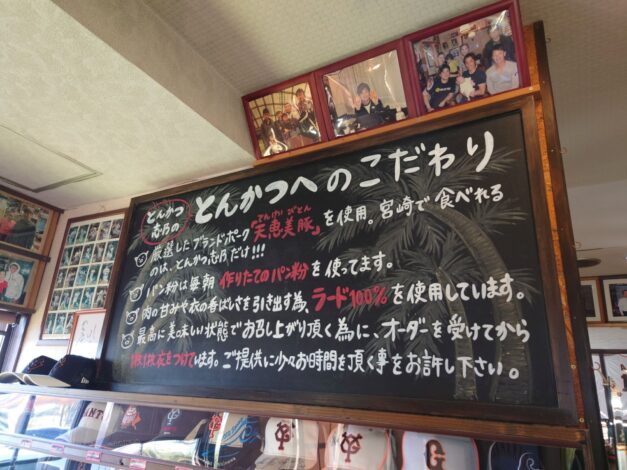 とんかつ
志乃の
とんかつへのこだわり
厳選したブランドポーク「天恵美豚」を使用。宮崎で食べれる
てんけい びとん
のは、とんかつ志乃だけ!!!
パン粉は毎朝 作りたてのパン粉を使ってます。
肉の甘みや衣の香ばしさを引き出す為、ラード100%を使用しています。
最高に美味い状態でお召し上がり頂く為に、オーダーを受けてから
1枚1枚衣をつけています。ご提供に少々お時間を頂く事をお許し下さい。
G